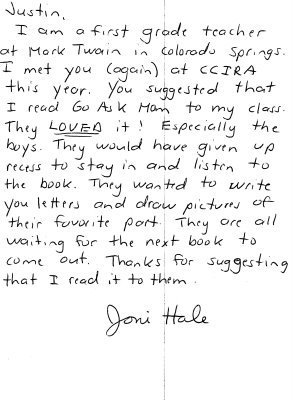 Justin,
I am a first grade teacher
at Mark Twain in Colorado Springs.
I met you (again) at CCIRA
this year. You suggested that
I read Go Ask Mom to my class.
They LOVED it! Especially the
boys. They would have given up
recess to stay in and listen to
the book. They wanted to write
you letters and draw pictures of
their favorite part. They are all
waiting for the next book to
come out. Thanks for suggesting
that I read it to them.
Joni Hale